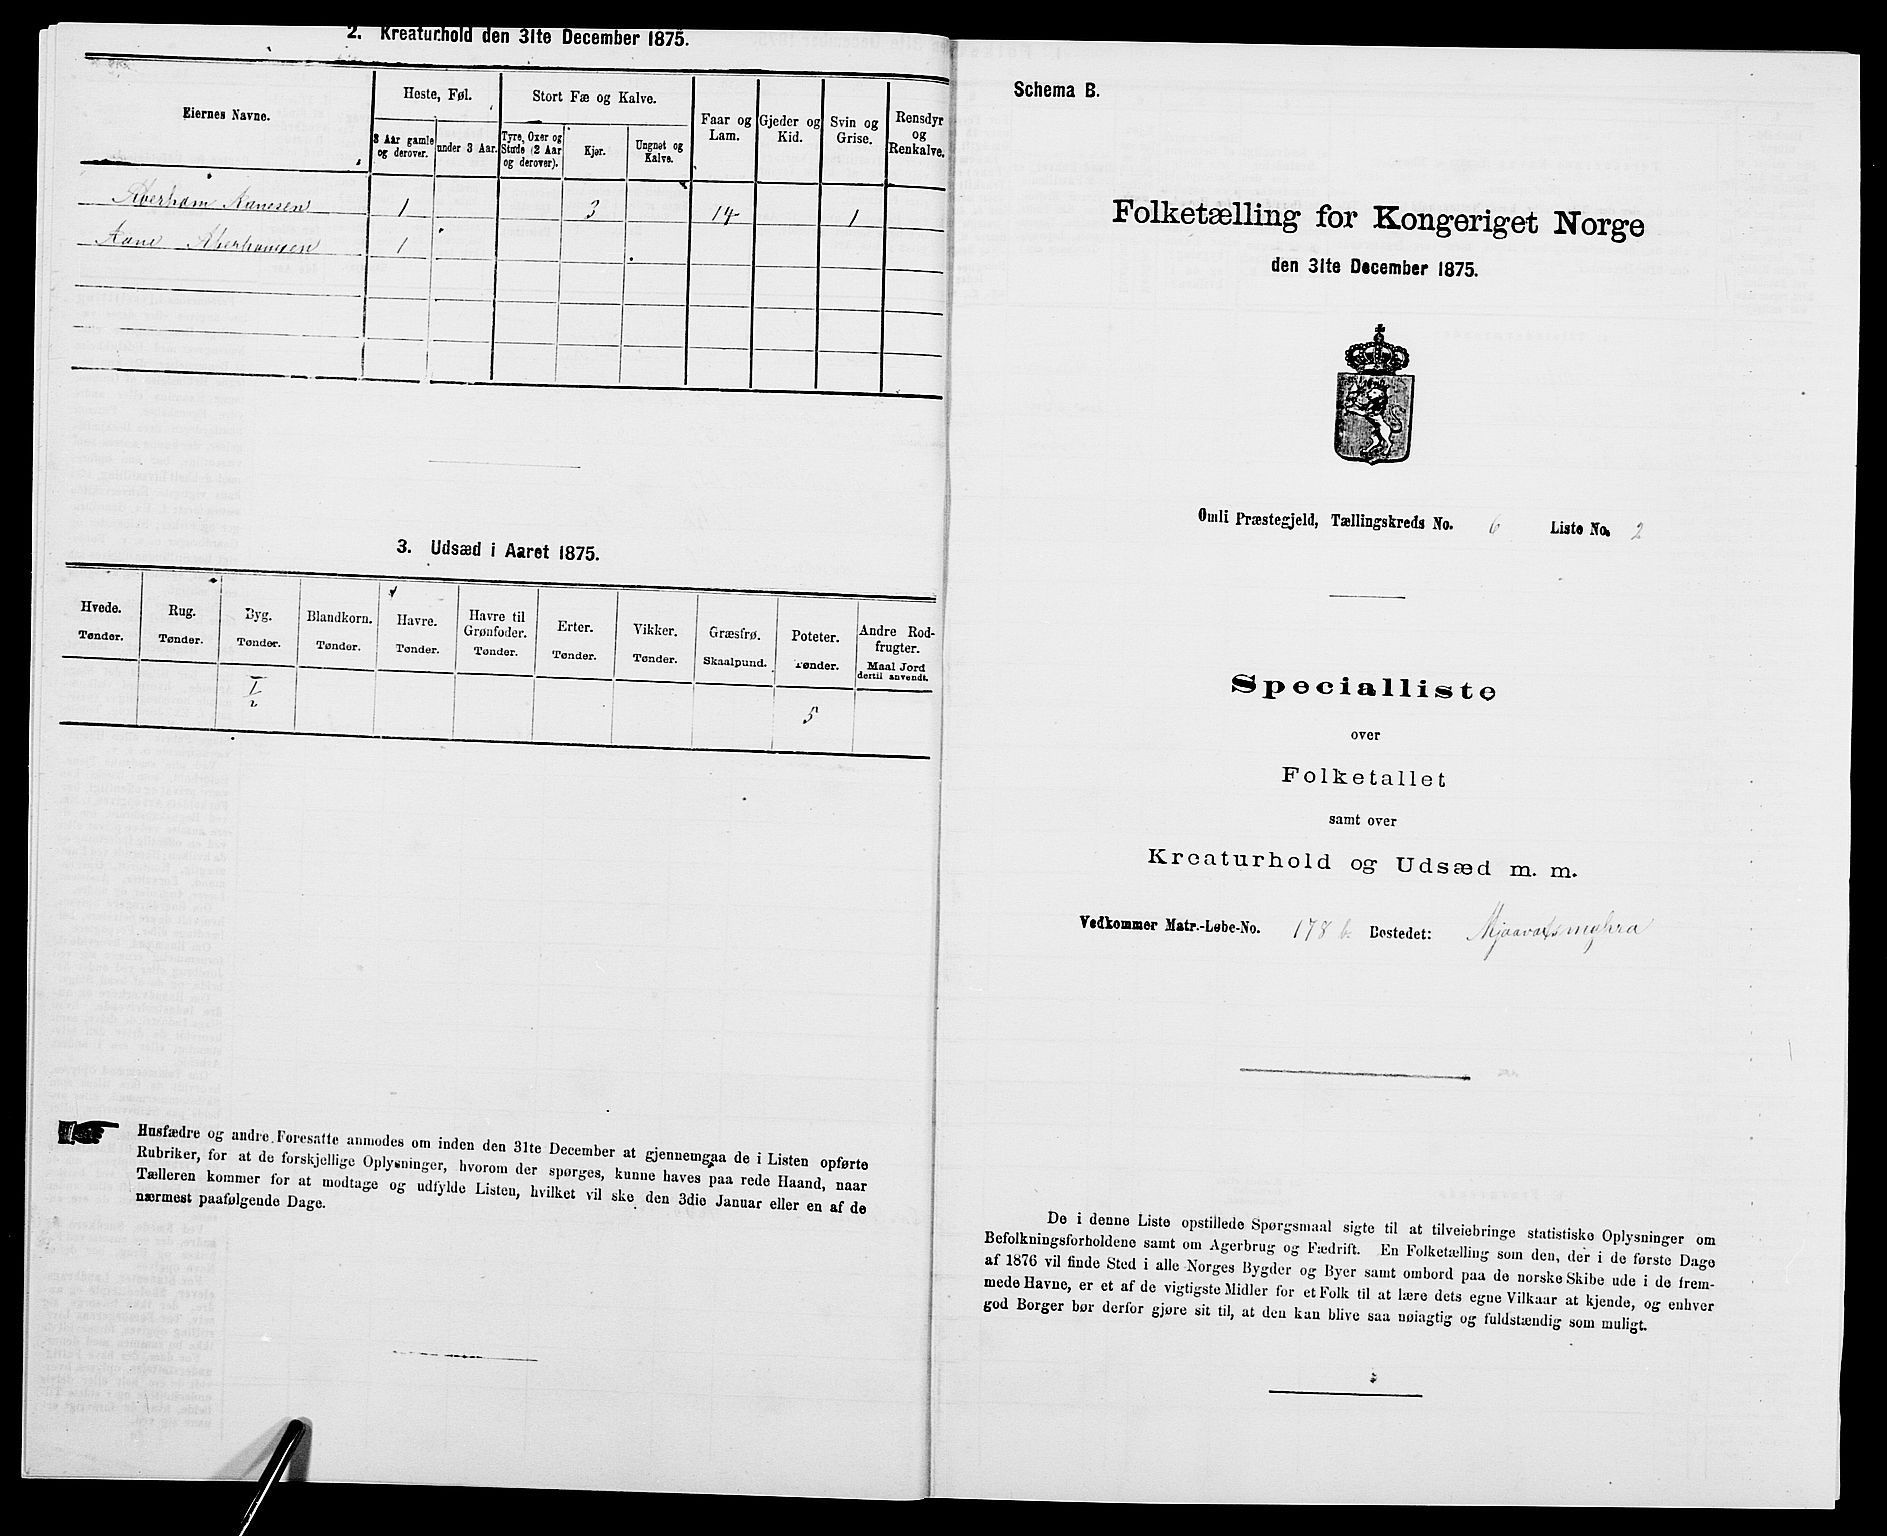 2. Kreaturhold den 31te December 1875.
Eiernes Navne.
Heste, Føl.
Stort Fæ og Kalve.
Faar og Lam.
Gjeder og Kid.
Svin og Grise.
Rensdyr og Renkalve.
3 Aar gamle og derover.
under 3 Aar.
Tyre, Oxer og Stude (2 Aar og derover).
Kjør.
Ungnøt og Kalve.
Aberham Aanesen 1 3 14 1
Aane Aberhamsen 1
3. Udsæd i Aaret 1875.
Hvede. Tønder.
Rug. Tønder.
Byg. Tønder.
Blandkorn. Tønder.
Havre. Tønder.
Havre til Grønfoder. Tønder.
Erter. Tønder.
Vikker. Tønder.
Græsfrø. Skaalpund.
Poteter. Tønder.
Andre Rodfrugter. Maal Jord dertil anvendt.
1/2 5
Husfædre og andre Foresatte anmodes om inden den 31te December at gjennemgaa de i Listen opførte
Rubriker, for at de forskjellige Oplysninger, hvorom der spørges, kunne haves paa rede Haand, naar
Tælleren kommer for at modtage og udfylde Listen, hvilket vil ske den 3die Januar eller en af de
nærmest paafølgende Dage.
Schema B.
Folketælling for Kongeriget Norge
den 31te December 1875.
Omli Præstegjeld, Tællingskreds No. 6 Liste No. 2
Specialliste
over
Folketallet
samt over
Kreaturhold og Udsæd m. m.
Vedkommer Matr.-Løbe-No. 178 b. Bostedet: Mjaavatsmykra
De i denne Liste opstillede Spørgsmaal sigte til at tilveiebringe statistiske Oplysninger om
Befolkningsforholdene samt om Agerbrug og Fædrift. En Folketælling som den, der i de første Dage
af 1876 vil finde Sted i alle Norges Bygder og Byer samt ombord paa de norske Skibe ude i de frem-
mede Havne, er et af de vigtigste Midler for et Folk til at lære dets egne Vilkaar at kjende, og enhver
god Borger bør derfor gjøre sit til, at den kan blive saa nøiagtig og fuldstændig som muligt.